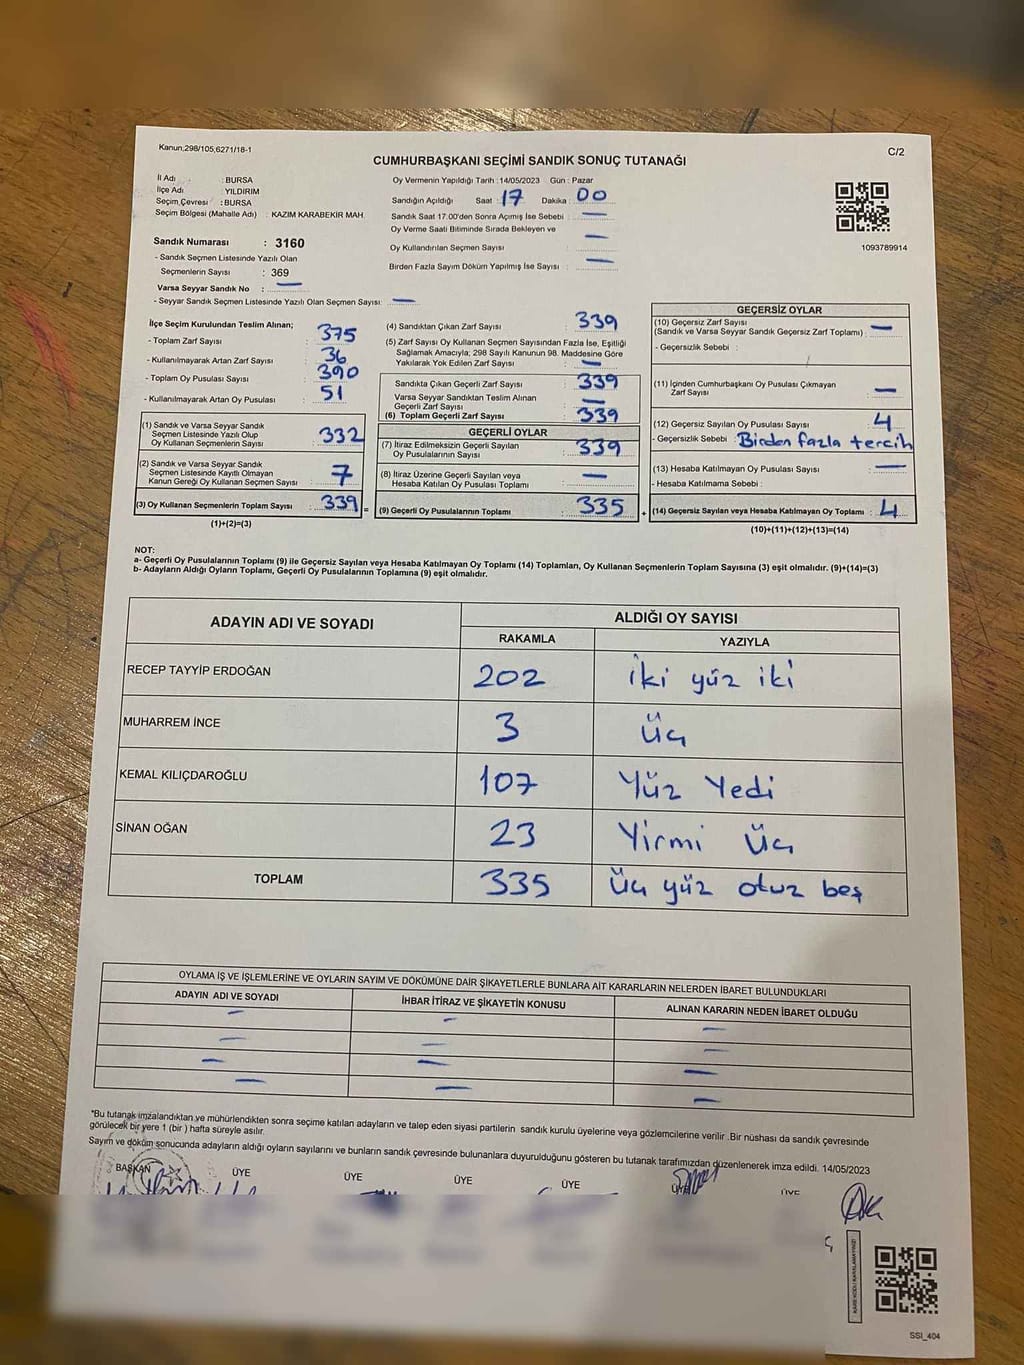 Kanun,298/105,6271/18-1
C/2
CUMHURBAŞKANI SEÇİMİ SANDIK SONUÇ TUTANAĞI
İl Adı : BURSA
İlçe Adı : YILDIRIM
Seçim Çevresi : BURSA
Seçim Bölgesi (Mahalle Adı) : KAZIM KARABEKİR MAH.
Oy Vermenin Yapıldığı Tarih :14/05/2023 Gün : Pazar
Sandığın Açıldığı Saat : 17 Dakika : 00
Sandık Saat 17:00'den Sonra Açımış İse Sebebi : —
Oy Verme Saati Bitiminde Sırada Bekleyen ve
Oy Kullandırılan Seçmen Sayısı : —
Birden Fazla Sayım Döküm Yapılmış İse Sayısı : —
1093789914
Sandık Numarası : 3160
- Sandık Seçmen Listesinde Yazılı Olan
Seçmenlerin Sayısı : 369
Varsa Seyyar Sandık No : —
- Seyyar Sandık Seçmen Listesinde Yazılı Olan Seçmen Sayısı: —
İlçe Seçim Kurulundan Teslim Alınan;
- Toplam Zarf Sayısı : 375
- Kullanılmayarak Artan Zarf Sayısı : 36
- Toplam Oy Pusulası Sayısı : 390
- Kullanılmayarak Artan Oy Pusulası : 51
(1) Sandık ve Varsa Seyyar Sandık
Seçmen Listesinde Yazılı Olup
Oy Kullanan Seçmenlerin Sayısı : 332
(2) Sandık ve Varsa Seyyar Sandık
Seçmen Listesinde Kayıtlı Olmayan
Kanun Gereği Oy Kullanan Seçmen Sayısı : 7
(3) Oy Kullanan Seçmenlerin Toplam Sayısı : 339 =
(1)+(2)=(3)
(4) Sandıktan Çıkan Zarf Sayısı : 339
(5) Zarf Sayısı Oy Kullanan Seçmen Sayısından Fazla İse, Eşitliği
Sağlamak Amacıyla; 298 Sayılı Kanunun 98. Maddesine Göre
Yakılarak Yok Edilen Zarf Sayısı : —
Sandıkta Çıkan Geçerli Zarf Sayısı : 339
Varsa Seyyar Sandıktan Teslim Alınan
Geçerli Zarf Sayısı : —
(6) Toplam Geçerli Zarf Sayısı : 339
GEÇERLİ OYLAR
(7) İtiraz Edilmeksizin Geçerli Sayılan
Oy Pusulalarının Sayısı : 339
(8) İtiraz Üzerine Geçerli Sayılan veya
Hesaba Katılan Oy Pusulası Toplamı : —
(9) Geçerli Oy Pusulalarının Toplamı : 335 +
GEÇERSİZ OYLAR
(10) Geçersiz Zarf Sayısı
(Sandık ve Varsa Seyyar Sandık Geçersiz Zarf Toplamı) : —
- Geçersizlik Sebebi :
(11) İçinden Cumhurbaşkanı Oy Pusulası Çıkmayan
Zarf Sayısı : —
(12) Geçersiz Sayılan Oy Pusulası Sayısı : 4
- Geçersizlik Sebebi : Birden fazla tercih
(13) Hesaba Katılmayan Oy Pusulası Sayısı : —
- Hesaba Katılmama Sebebi :
(14) Geçersiz Sayılan veya Hesaba Katılmayan Oy Toplamı : 4
(10)+(11)+(12)+(13)=(14)
NOT:
a- Geçerli Oy Pusulalarının Toplamı (9) ile Geçersiz Sayılan veya Hesaba Katılmayan Oy Toplamı (14) Toplamları, Oy Kullanan Seçmenlerin Toplam Sayısına (3) eşit olmalıdır. (9)+(14)=(3)
b- Adayların Aldığı Oyların Toplamı, Geçerli Oy Pusulalarının Toplamına (9) eşit olmalıdır.
ADAYIN ADI VE SOYADI ALDIĞI OY SAYISI
RAKAMLA YAZIYLA
RECEP TAYYİP ERDOĞAN 202 iki yüz iki
MUHARREM İNCE 3 üç
KEMAL KILIÇDAROĞLU 107 Yüz Yedi
SİNAN OĞAN 23 Yirmi üç
TOPLAM 335 üç yüz otuz beş
OYLAMA İŞ VE İŞLEMLERİNE VE OYLARIN SAYIM VE DÖKÜMÜNE DAİR ŞİKAYETLERLE BUNLARA AİT KARARLARIN NELERDEN İBARET BULUNDUKLARI
ADAYIN ADI VE SOYADI İHBAR İTİRAZ VE ŞİKAYETİN KONUSU ALINAN KARARIN NEDEN İBARET OLDUĞU
— — —
— — —
— — —
— — —
*Bu tutanak imzalandıktan ve mühürlendikten sonra seçime katılan adayların ve talep eden siyasi partilerin sandık kurulu üyelerine veya gözlemcilerine verilir .Bir nüshası da sandık çevresinde
görülecek bir yere 1 (bir ) hafta süreyle asılır.
Sayım ve döküm sonucunda adayların aldığı oyların sayılarını ve bunların sandık çevresinde bulunanlara duyurulduğunu gösteren bu tutanak tarafımızdan düzenlenerek imza edildi. 14/05/2023
BAŞKAN ÜYE ÜYE ÜYE ÜYE ÜYE ÜYE
SSI_404